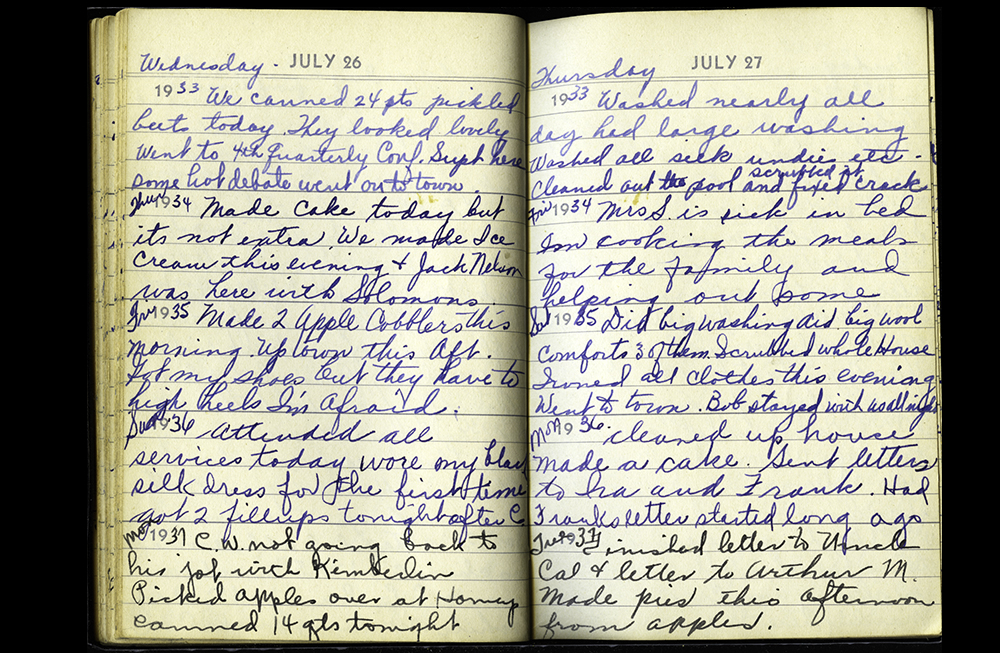 Wednesday. JULY 26
1933 We canned 24 pts pickled
beets today. They looked lovely
Went to 4th quarterly Conf. Supt here
some hot debate went on to town.
Thur 1934 Made cake today but
its not extra. We made Ice
Cream this evening & Jack Nelson
was here with Solomons.
Fri 1935 Made 2 Apple Cobblers this
morning. Up town this Aft.
Got my shoes but they have to
high heels I'm Afraid.
Sun 1936 Attended all
services today wore my blac
silk dress for the first time
got 2 fillups tonight after C
Mo 1937 C.W. not going back to
his job with Kimberlin
Picked apples over at
canned 14 qts tonight
Thursday JULY 27
1933 Washed nearly all
day had large washing
Washed all silk undies etc.
scrubbed it
Cleaned out the pool and fixed crack
Fri 1934 Mrs S is sick in bed
Im cooking the meals
for the family and
helping out some
Sat 1935 Did big washing Aid. big wool
comforts 3 of them. Scrubbed whole House
Ironed all clothes this evening.
Went to town. Bob stayed with us all night
Mon 1936. cleaned up house
made a cake. Sent letters
to Ira and Frank. Had
Franks letter started long ago
Tue 1937 Finished letter to Uncle
Cal & letter to Arthur M.
Made pies this afternoon
from apples.